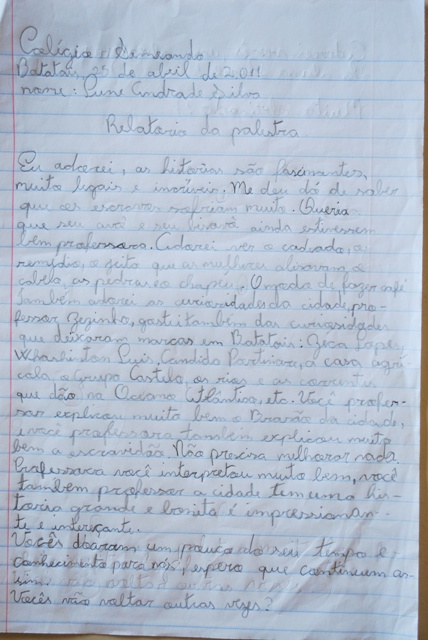 Colégio Semeando
Batatais, 25 de abril de 2.011
nome: Lune Andrade Silva
Relatorio da palestra
Eu adorei, as historias são fascinantes,
muito legais e incríveis. Me deu dó de saber
que os escravos sofriam muito. Queria
que seu avô e seu bisavô ainda estivessem
bem professora. Adorei ver o cadeado, o
remédio, o jeito que as mulheres alisavam o
cabelo, as pedras e o chapéu. O modo de fazer café
Também adorei as curiosidades da cidade, pro-
fessor Zezinho, gostei também das curiosidades
que deixaram marcas em Batatais: Zeca Lopes,
Washington Luis, Candido Portinari, a casa agrí-
cola, o Grupo Castelo, os rios e as correntes
que dão no Oceano Atlântico, etc. Você profes-
sor explicou muito bem o Brasão da cidade,
e você professora também explicou muito
bem a escravidão. Não precisa melhorar nada
Professora você interpretou muito bem, você
também professor a cidade tem uma his-
toria grande e bonita é impressionan-
te e interçante.
Vocês doaram um pouco do seu tempo e
conhecimento para nós, espero que continuem as-
sim.
Vocês vão voltar outras vezes?